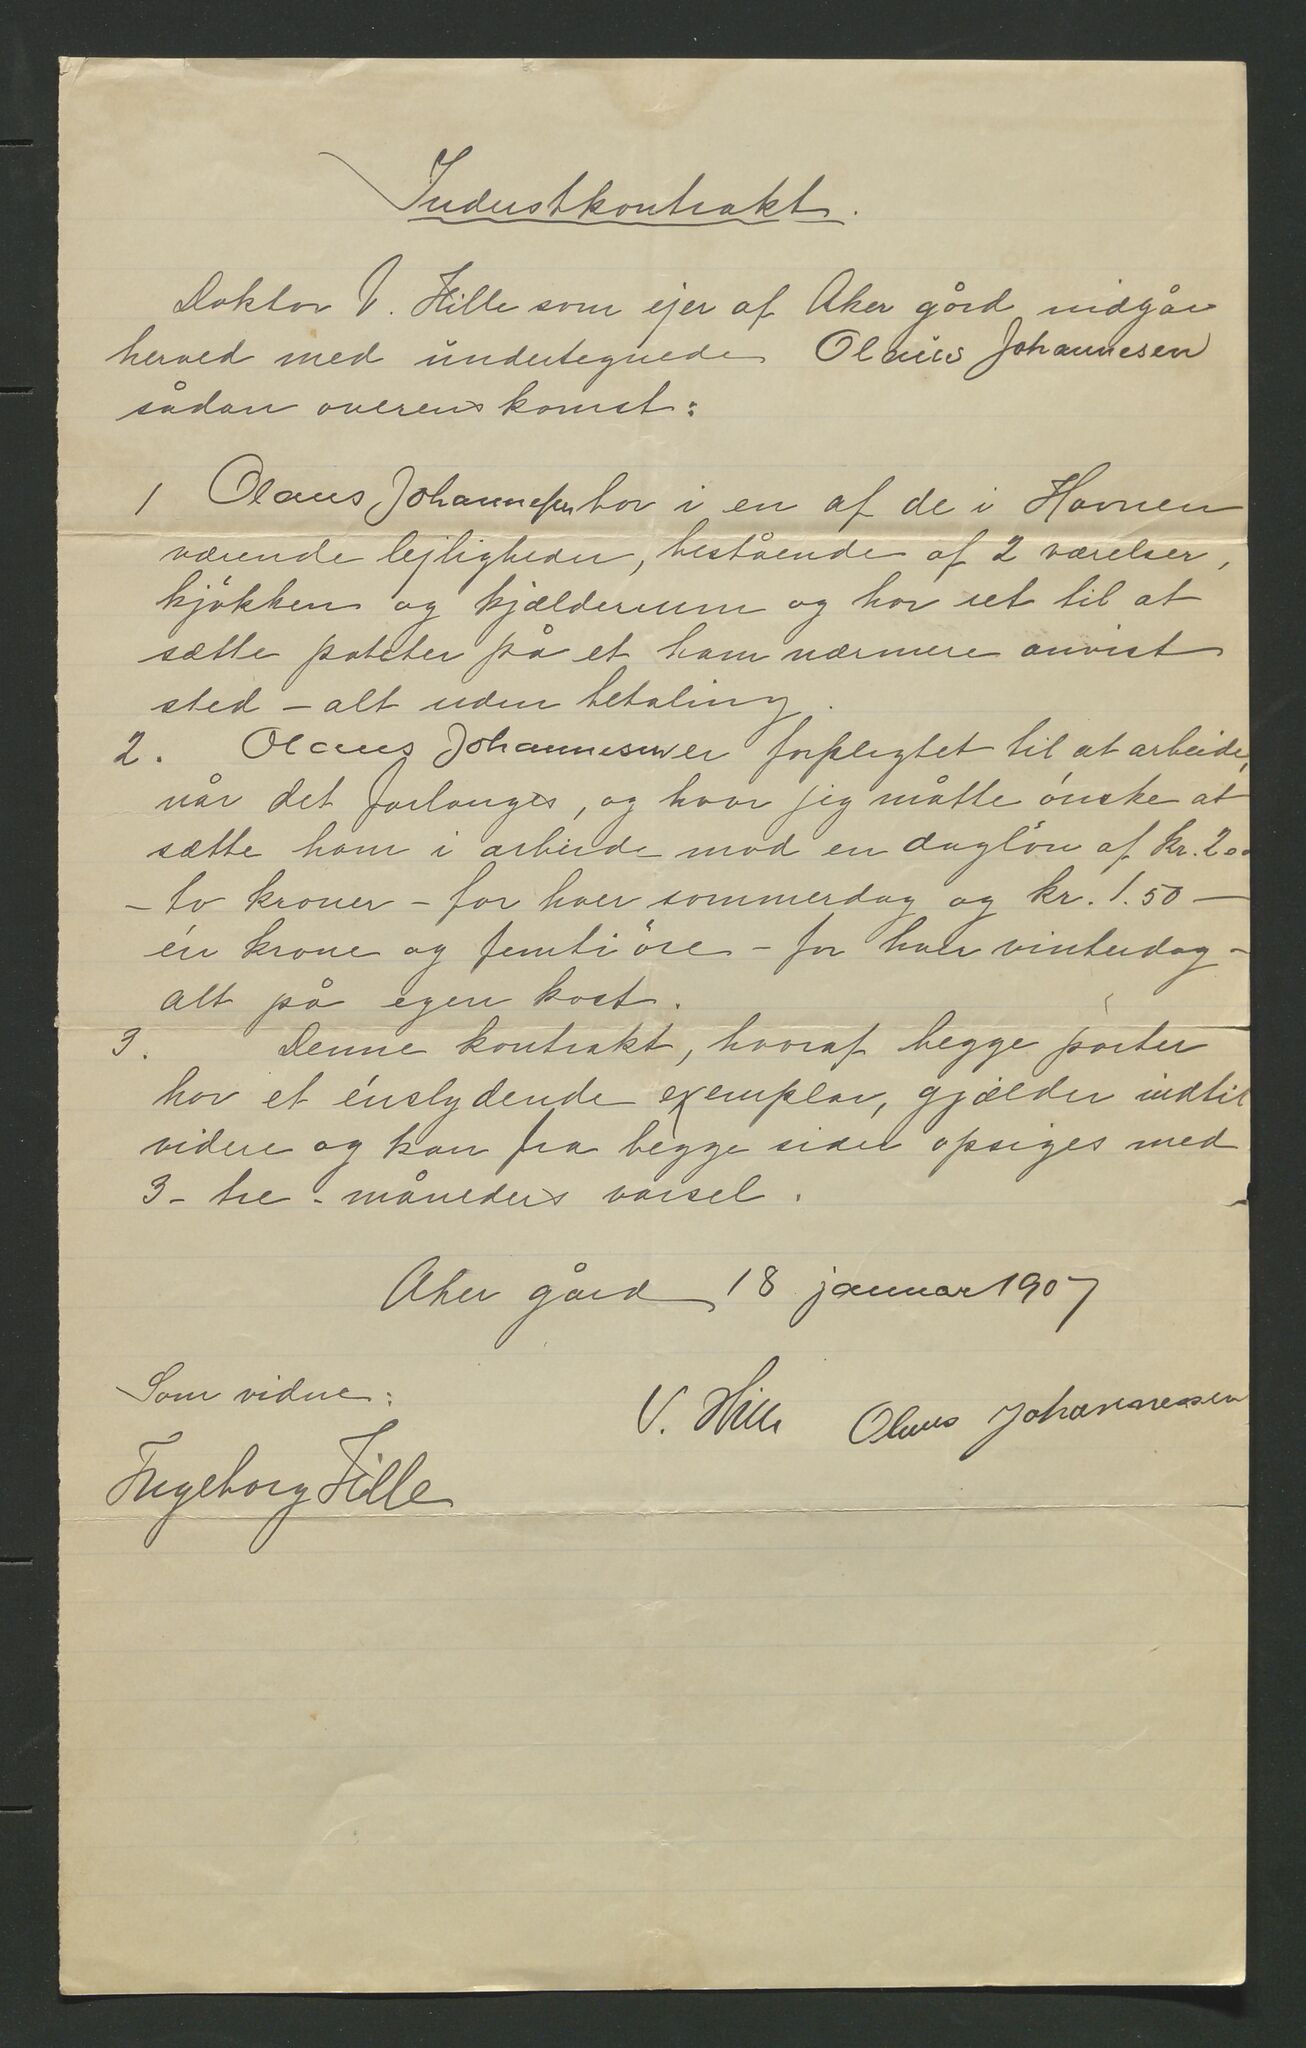 Industkontrakt.
Doktor V. Hille som ejer af Aker gård indgår
herved med undertegnede Olaus Johannesen
sådan overenskomst:
1 Olaus Johannesen bor i en af de i Havnen
værende lejligheder, bestående af 2 værelser,
kjøkken og kjælderrum og har ret til at
sætte poteter på et ham nærmere anvist
sted – alt uden betaling.
2. Olaus Johannesen er forpligtet til at arbeide,
når det forlanges, og hvor jeg måtte ønske at
sætte ham i arbeide mod en dagløn af kr. 2.00
– to kroner – for hver sommerdag og kr. 1.50 –
én krone og femti øre – for hver vinterdag –
alt på egen kost.
3. Denne kontrakt, hvoraf begge parter
har et énslydende exemplar, gjælder indtil
videre og kan fra begge sider opsiges med
3 – tre – måneders varsel.
Aker gård 18 januar 1907
Som vidne:
V. Hille Olaus Johannessen
Ingeborg Hille